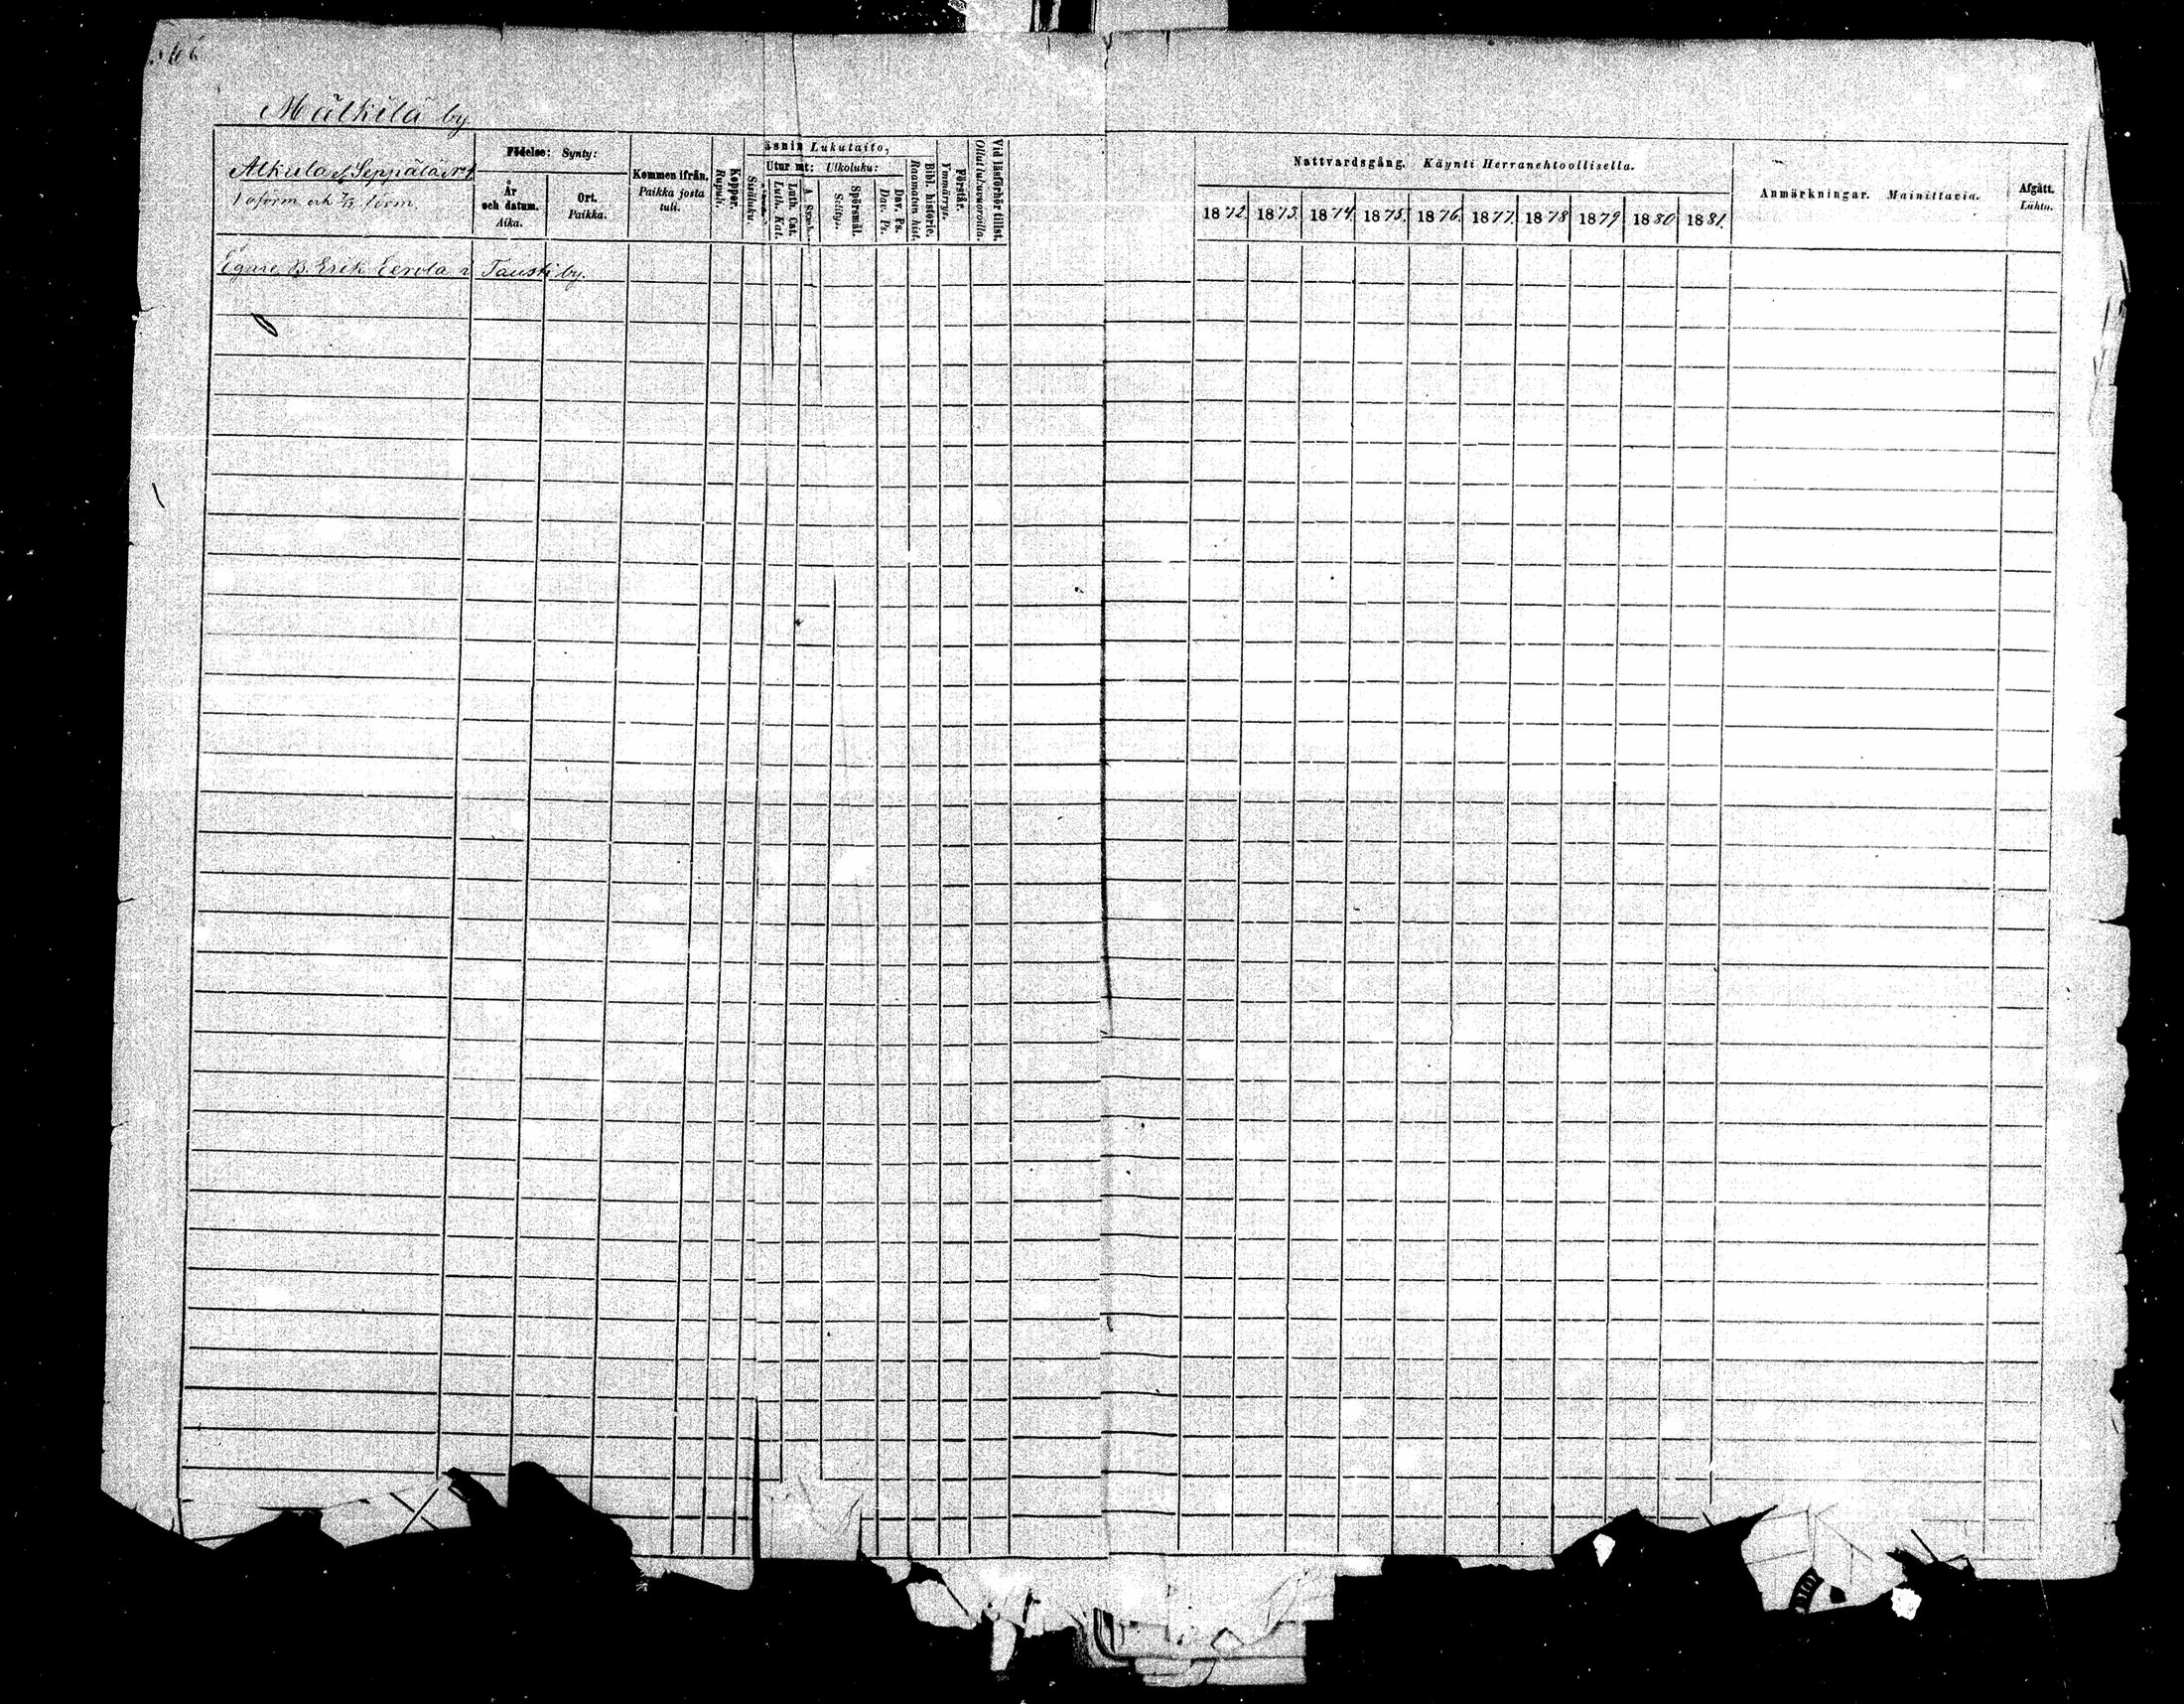 Mälkilä by
Alkula l. Seppälä № 1
Födelse: Synty:
År och datum. Aika.
Ort. Paikka.
Kommen ifrån. Paikka josta tuli.
Koppor. Rupuli.
Sisäluku.
Lukutaito,
Ulkoluku:
Luth. Cat. Luth. Kat.
Spörsmål. Selitys.
Dav. Ps. Dav. Ps.
Bibl. historie. Raamatun hist.
Förstår. Ymmärrys.
Vid läsförhör tillst. Ollut lukuvuoroilla.
Nattvardsgång. Käynti Herranehtoollisella.
1872. 1873. 1874. 1875. 1876. 1877. 1878 1879 1880 1881.
Anmärkningar. Mainittavia.
Afgått. Lähtö.
Egare B. Erik Eerola i Tauski by.